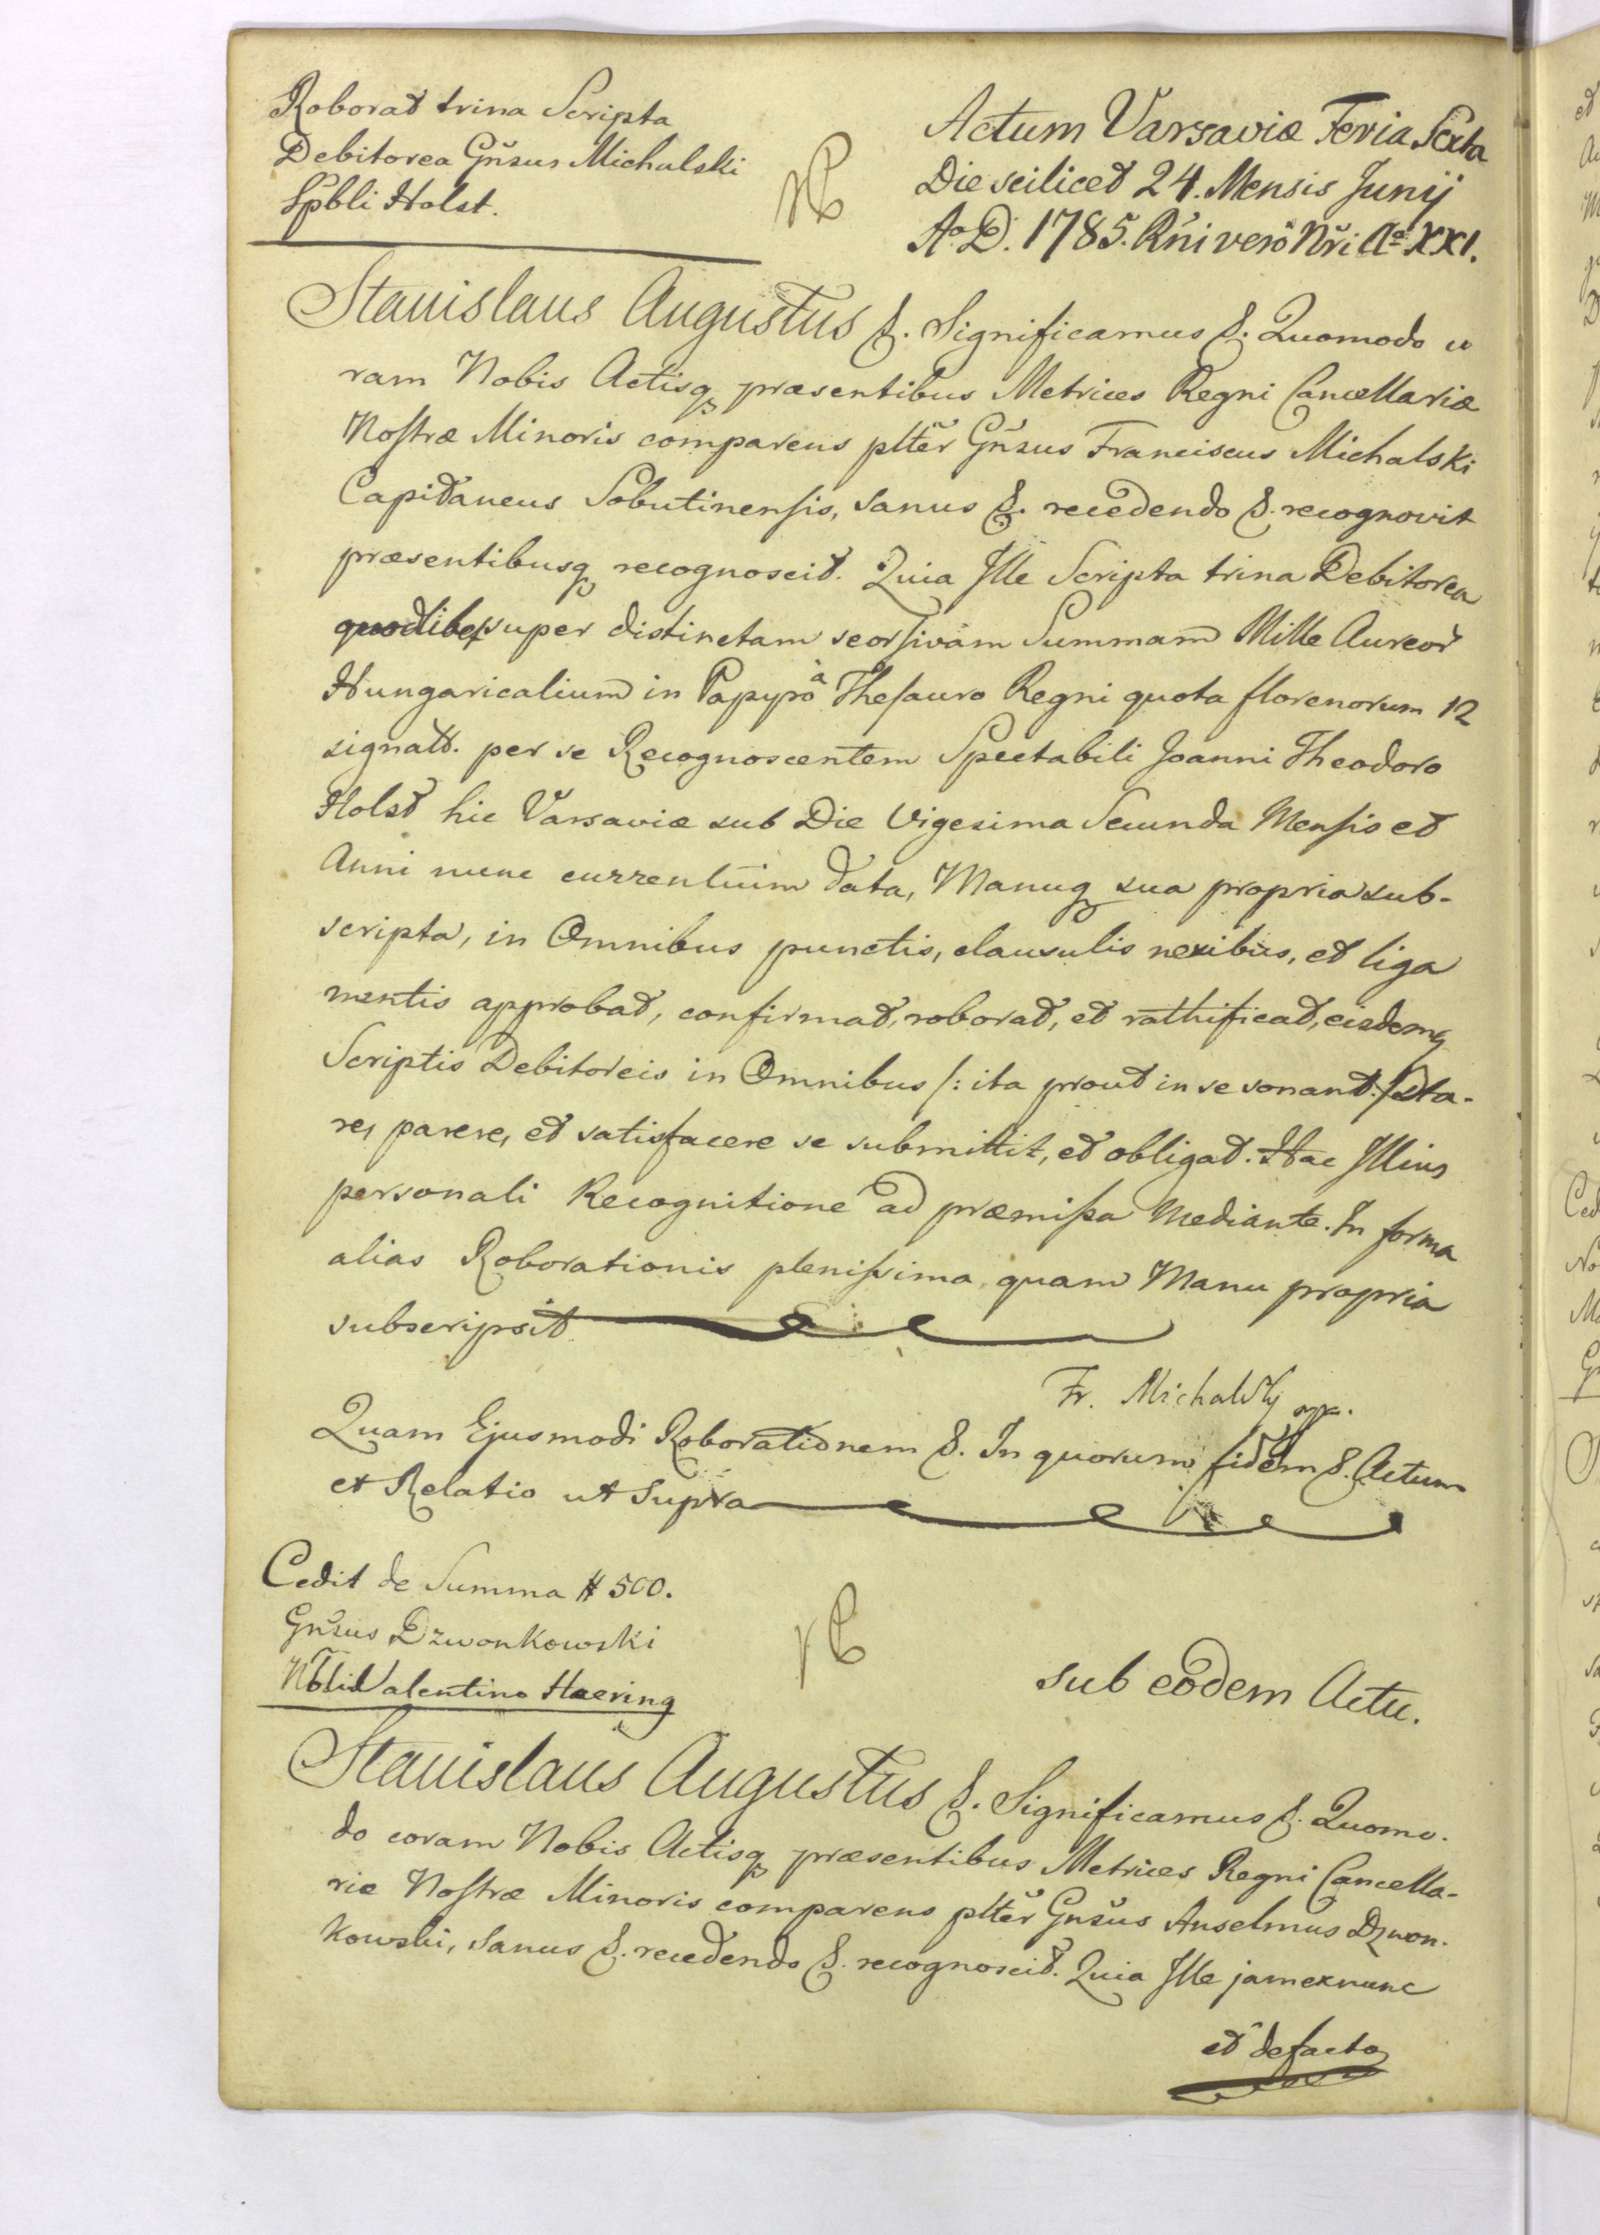 Roborat trina Scripta
Debitorea Gn̄sus Michalski
Spbli Holst.
Actum Varsaviæ Feria Sexta
Die scilicet 24. Mensis Junÿ
Ao D. 1785. Rn̄i verò Nr̄i Ao XXI.
Stanislaus Augustus &. Significamus &. Quomodo co
ram Nobis Actisq præsentibus Metrices Regni Cancellariæ
Nostræ Minoris comparens pltēr Gn̄sus Franciscus Michalski
Capitaneus Sobutinensis, sanus &. recedendo &. recognovit
præsentibusq recognoscit. Quia Ille Scripta trina Debitorea
quodlibet super distinctam seorsivam Summam Mille Aureor̄
Hungaricalium in Papyro à Thesauro Regni quota florenorum 12
signatt. per se Recognoscentem Spectabili Joanni Theodoro
Holst hic Varsaviæ sub Die Vigesima Secunda Mensis et
Anni nunc currentium data, Manuq sua propria sub-
scripta, in Omnibus punctis, clausulis nexibus, et liga
mentis approbat, confirmat, roborat, et rathificat, eisdemq
Scriptis Debitoreis in Omnibus /: ita prout in se sonant :/ sta-
re, parere, et satisfacere se submittit, et obligat. Hac Illius
personali Recognitione ad præmissa Mediante. In forma
alias Roborationis plenissima, quam Manu propria
subscripsit
Fr. Michalsky mpr.
Quam Ejusmodi Roborationem &. In quorum fidem &. Actum
et Relatio ut Supra
Cedit de Summa # 500.
Gn̄sus Dzwonkowski
Nobli Valentino Haering
sub eodem Actu.
Stanislaus Augustus &. Significamus &. Quomo-
do coram Nobis Actisq præsentibus Metrices Regni Cancella-
riæ Nostræ Minoris comparens pltēr Gn̄sus Anselmus Dzwon-
kowski, Sanus &. recedendo &. recognoscit. Quia Ille jam ex nunc
et de facto